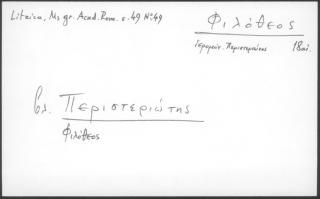 Litzica, Ms gr. Acad. Rom. σ. 49 Nº 49
Φιλόθεος
Ἱερομόν. Περιστεριώτης 18 αἰ.
βλ. Περιστεριώτης
Φιλόθεος